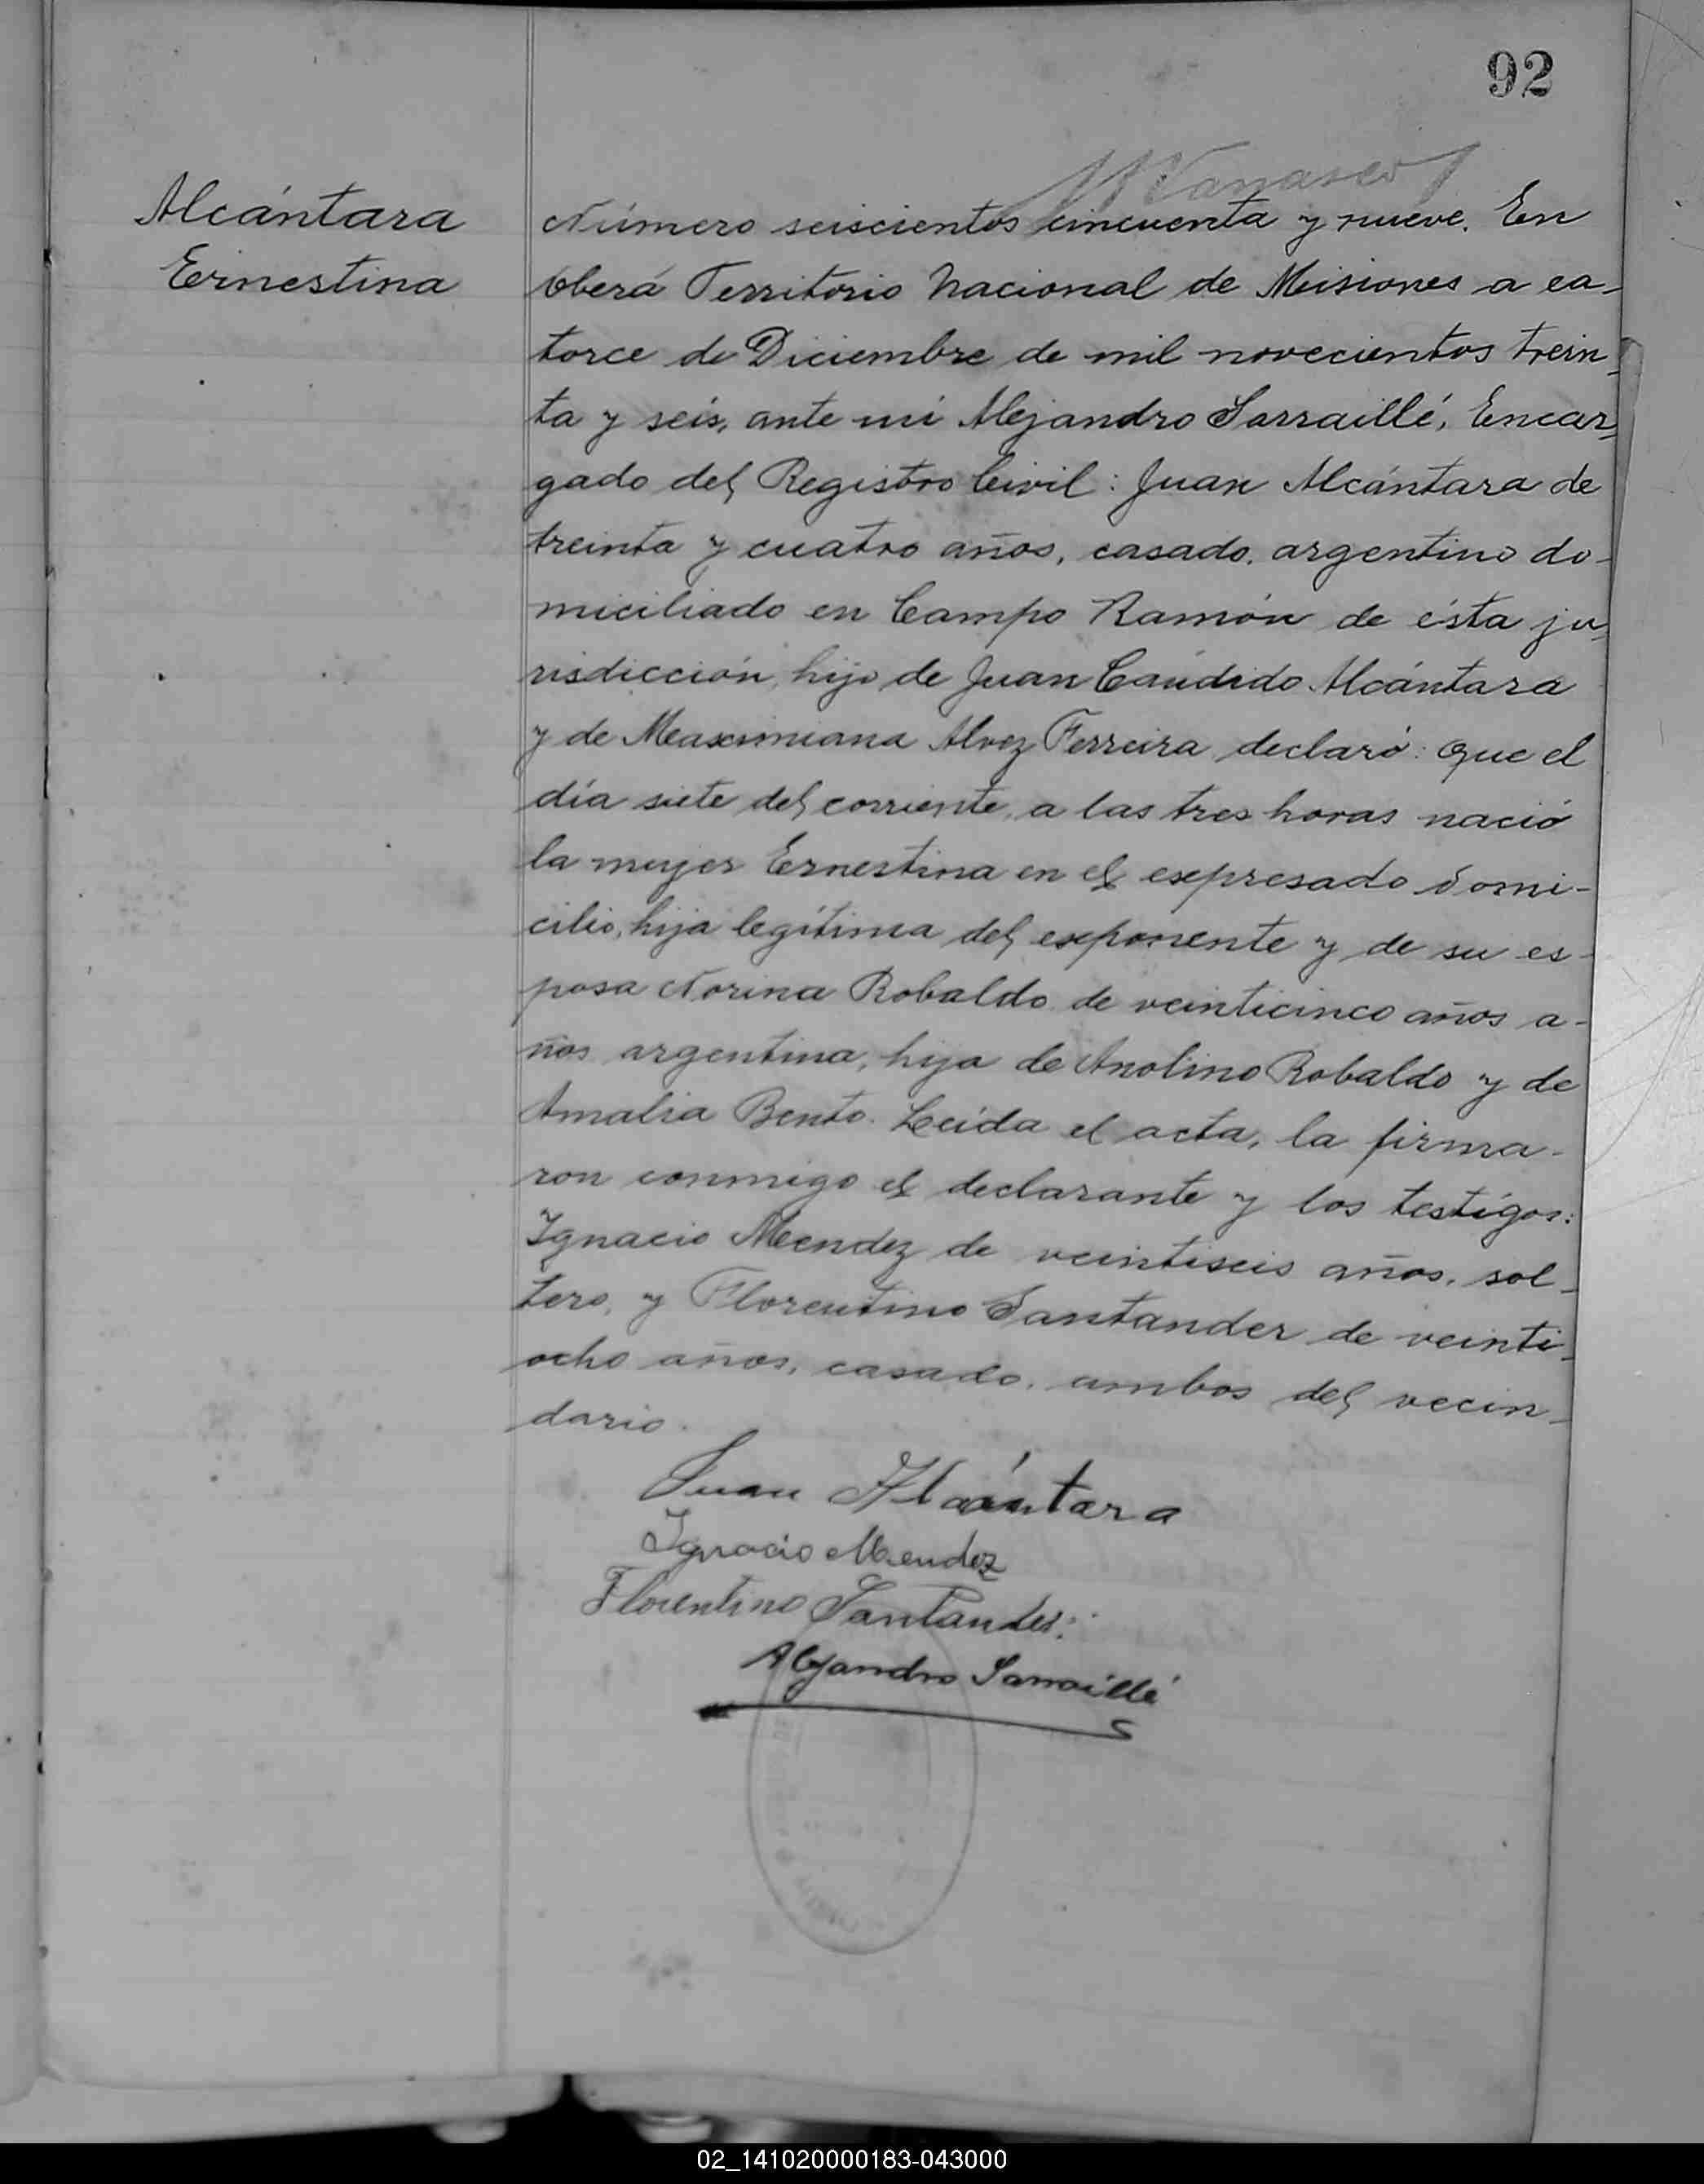 92
Alcántara
Ernestina
Número seiscientos cincuenta y nueve. En
Oberá Territorio Nacional de Misiones a ca-
torce de Diciembre de mil novecientos trein-
ta y seis, ante mi Alejandro Sarraillé, Encar-
gado del Registro Civil: Juan Alcántara de
treinta y cuatro años, casado, argentino do-
miciliado en Campo Ramón de ésta ju-
risdicción, hijo de Juan Cándido Alcántara
y de Maximiana Alvez Ferreira declaró: Que el
día siete del corriente, a las tres horas nació
la mujer Ernestina en el expresado domi-
cilio, hija legítima del exponente y de su es-
posa Norina Robaldo de veinticinco años a-
ños argentina, hija de Anolino Robaldo y de
Amalia Bento. Leída el acta, la firma-
ron conmigo el declarante y los testigos:
Ignacio Mendez de veintiseis años, sol-
tero, y Florentino Santander de veinti-
ocho años, casado, ambos del vecin-
dario.
Juan Alcántara
Ignacio Mendez
Florentino Santander
Alejandro Sarraillé
02_141020000183-043000